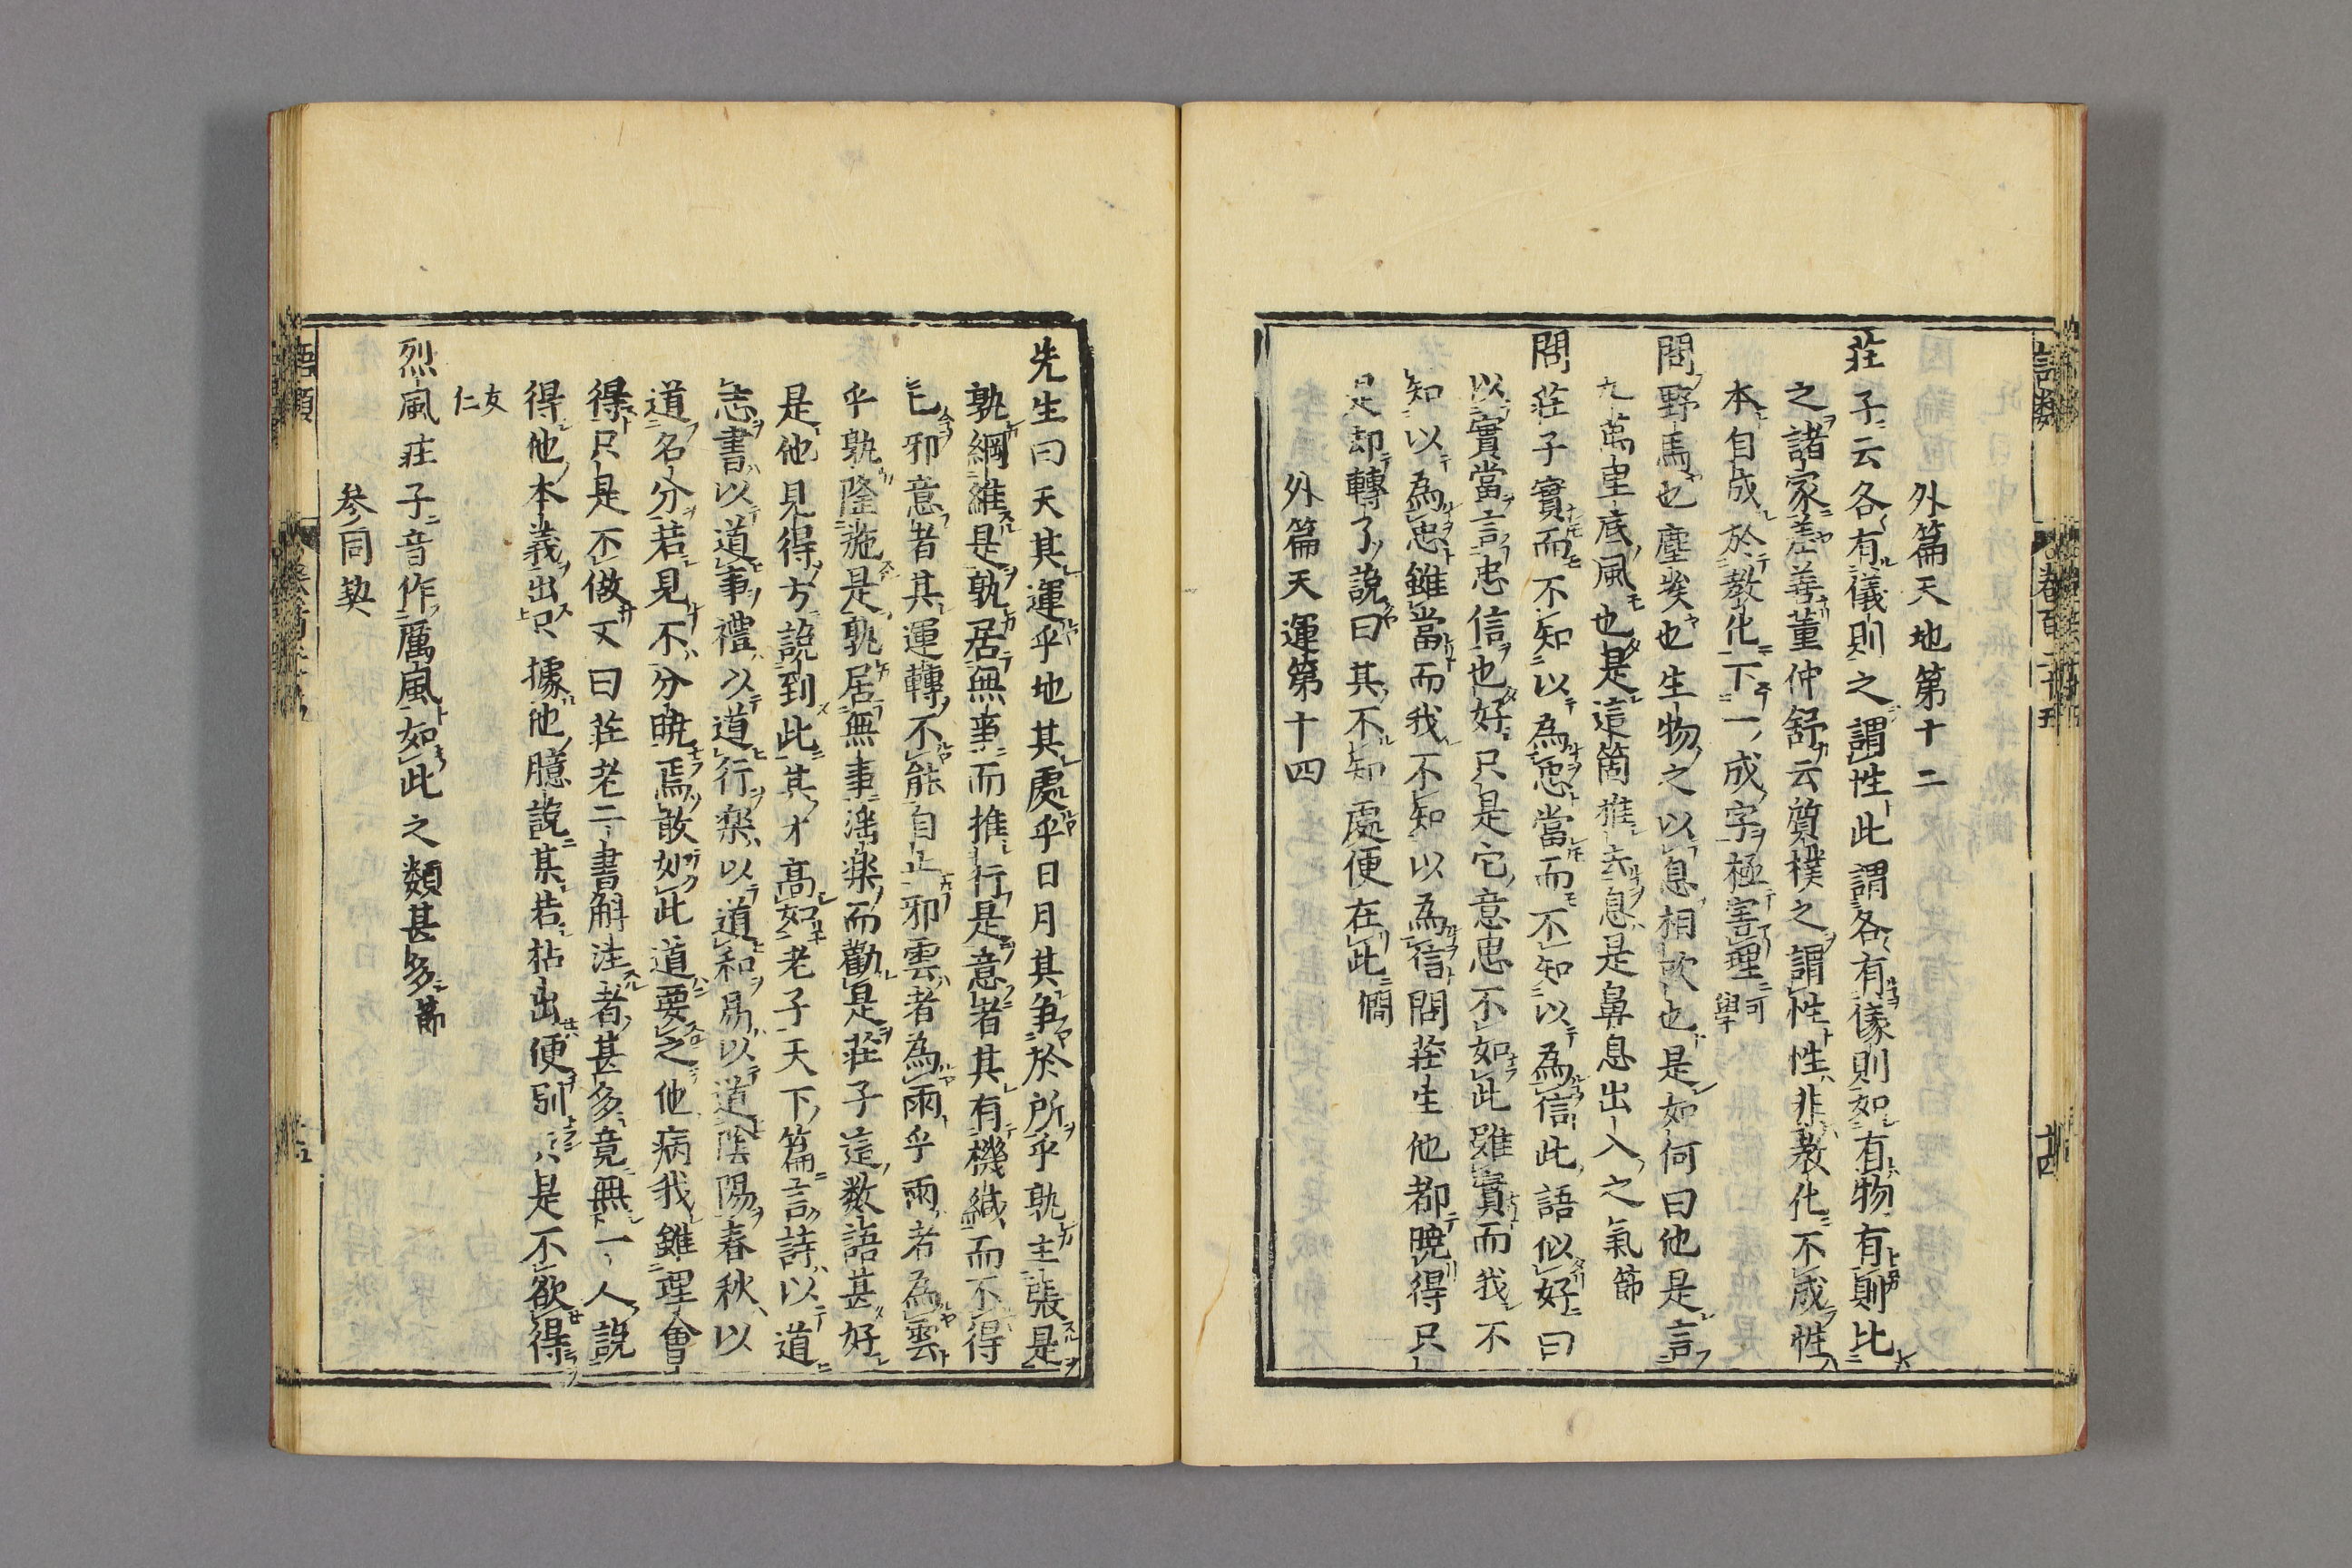 外篇天地第十二
莊子云各有儀則之謂性此謂各有儀則如有物有則比
之諸家差善董仲舒云質樸之謂性性非教化不成性
本自成於教化下一成字極害理可學
問野馬也塵埃也生物之以息相吹也是如何曰他是言
九萬里底風也是這箇推去息是鼻息出入之氣節
問莊子實而不知以為忠當而不知以為信此語似好曰
以實當言忠信也好只是它意思不如此雖實而我不
知以為忠雖當而我不知以為信問莊生他都曉得只
是却轉了說曰其不知處便在此僩
外篇天運第十四
先生曰天其運乎地其處乎日月其爭於所乎孰主張是
孰綱維是孰居無事而推行是意者其有機緘而不得
已邪意者其運轉不能自止邪雲者為雨乎雨者為雲
乎孰隆施是孰居無事淫樂而勸是莊子這数語甚好
是他見得方說到此其才高如老子天下篇言詩以道
志書以道事禮以道行楽以道和易以道陰陽春秋以
道名分若見不分曉焉敢如此道要之他病我雖理會
得只是不做又曰莊老二書解注者甚多竟無一人說
得他本義出只據他臆說某若拈出便別只是不欲得
友仁
烈風莊子音作厲風如此之類甚多節
參同契